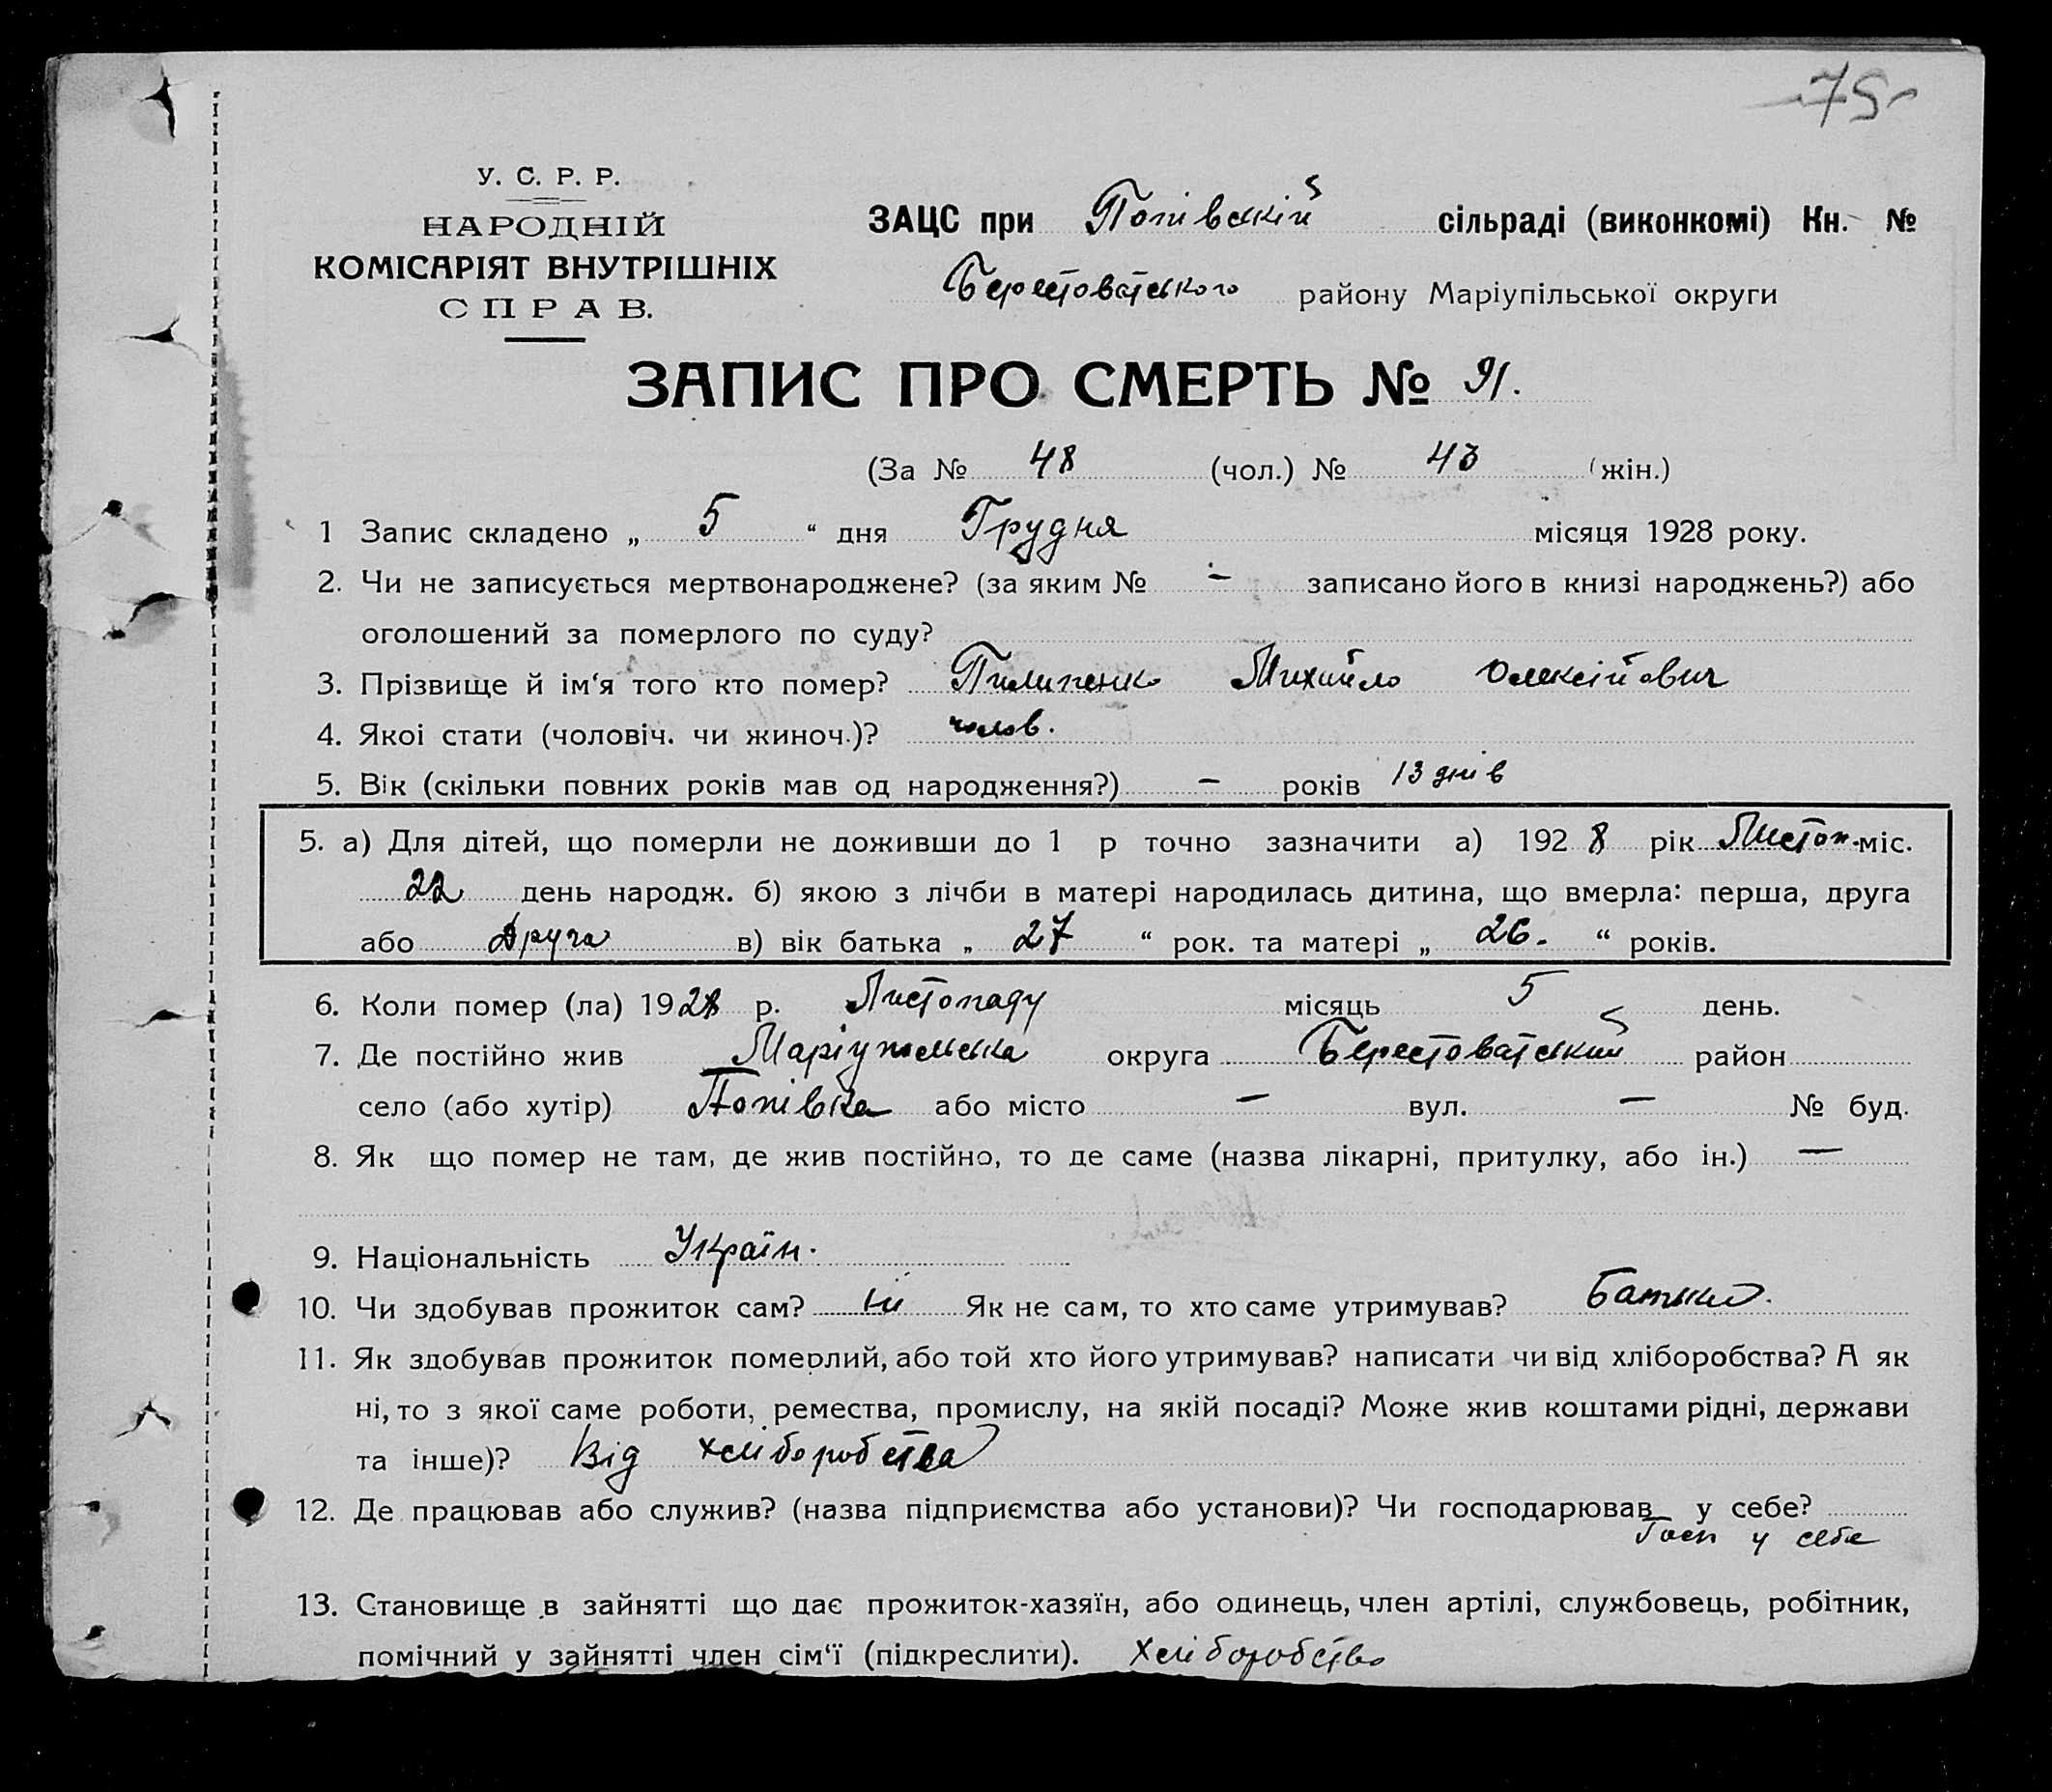 75
У. С. Р. Р.
НАРОДНІЙ
КОМІСАРІЯТ ВНУТРІШНІХ
СПРАВ.
ЗАЦС при Попівській сільраді (виконкомі) Кн. №
Берестоватського району Маріупільської округи
ЗАПИС ПРО СМЕРТЬ № 91.
(За № 48 (чол.) № 43 (жін.)
1 Запис складено „ 5 “ дня Грудня місяця 1928 року.
2. Чи не записується мертвонароджене? (за яким № — записано його в книзі народжень?) або
оголошений за померлого по суду?
3. Прізвище й ім‘я того кто помер? Пилипенко Михайло Олексійович
4. Якоі стати (чоловіч. чи жиноч.)? чолов.
5. Вік (скільки повних років мав од народження?) — років 13 днів
5. а) Для дітей, що померли не доживши до 1 р точно зазначити а) 1928 рік Листоп. міс.
22 день народж. б) якою з лічби в матері народилась дитина, що вмерла: перша, друга
або Друга в) вік батька „ 27 “ рок. та матері „ 26. “ років.
6. Коли помер (ла) 1928 р. Листопаду місяць 5 день.
7. Де постійно жив Маріупольська округа Берестоватський район
село (або хутір) Попівка або місто — вул. — № буд.
8. Як що помер не там, де жив постійно, то де саме (назва лікарні, притулку, або ін.) —
9. Національність Україн.
10. Чи здобував прожиток сам? ні Як не сам, то хто саме утримував? Батьки.
11. Як здобував прожиток померлий, або той хто його утримував? написати чи від хліборобства? А як
ні, то з якої саме роботи, ремества, промислу, на якій посаді? Може жив коштами рідні, держави
та інше)? Від хліборобства
12. Де працював або служив? (назва підприємства або установи)? Чи господарював у себе?
Госп у себе
13. Становище в зайнятті що дає прожиток-хазяїн, або одинець, член артілі, службовець, робітник,
помічний у зайнятті член сім‘ї (підкреслити). Хліборобство